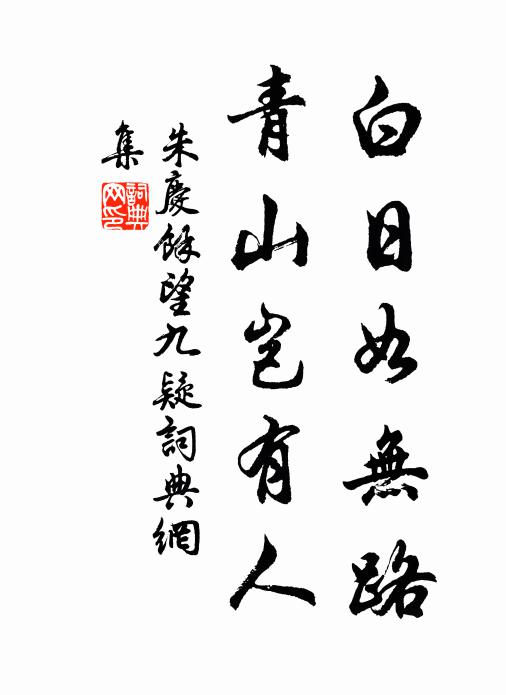 白日如無路
青山豈有人
朱慶餘望九疑詞典網
集
詞典網印